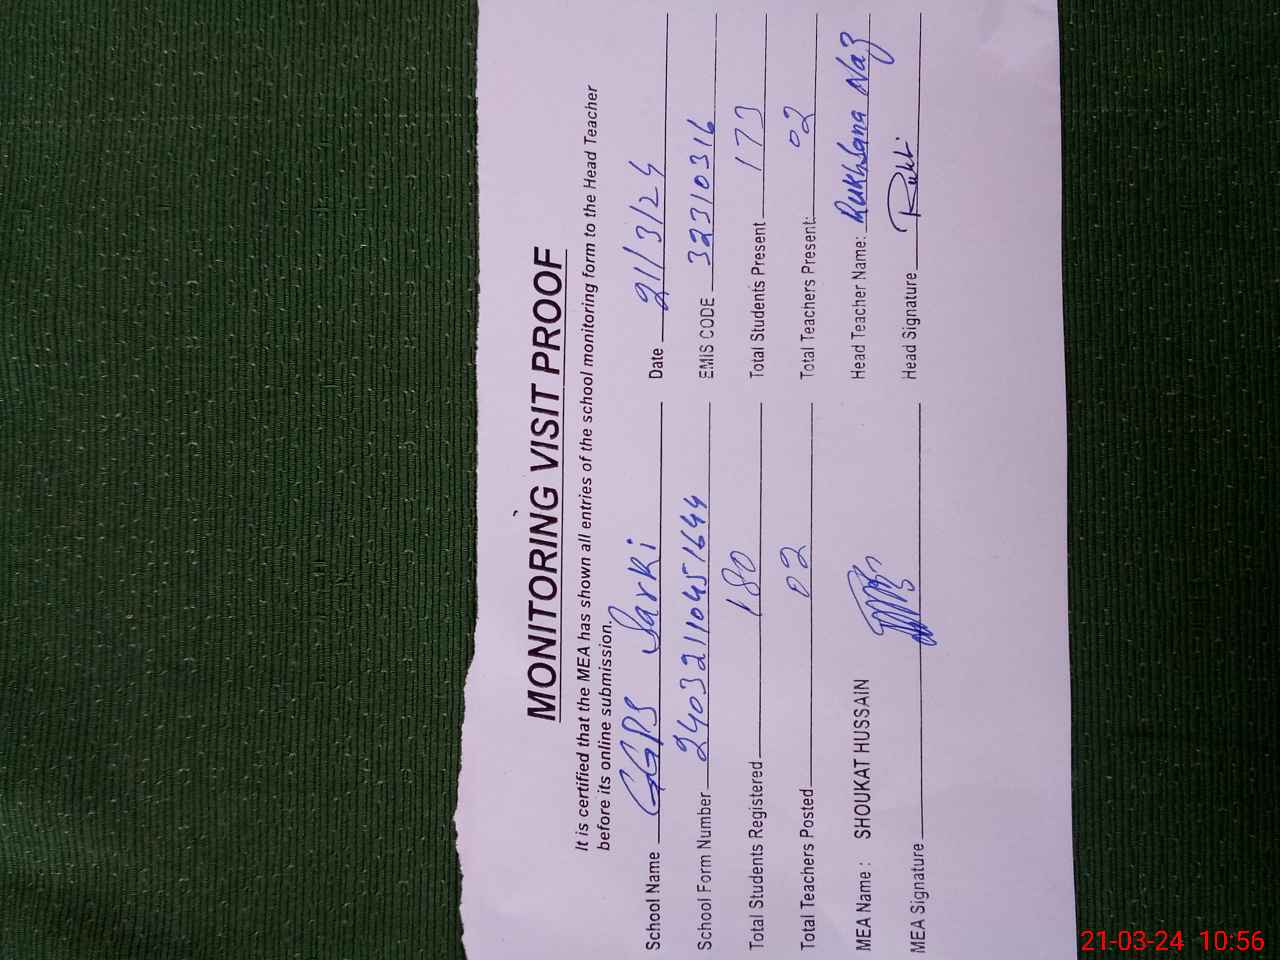 MONITORING VISIT PROOF
It is certified that the MEA has shown all entries of the school monitoring form to the Head Teacher
before its online submission.
School Name GGPS Sarki Date 21/3/24
School Form Number 240321110451644 EMIS CODE 32310316
Total Students Registered 180 Total Students Present 173
Total Teachers Posted 02 Total Teachers Present: 02
MEA Name : SHOUKAT HUSSAIN Head Teacher Name: Rukhsana Naz
MEA Signature Head Signature Rukh
21-03-24 10:56